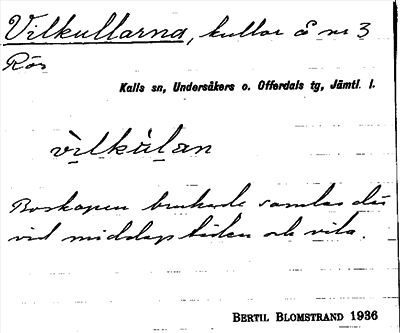 Vilkullarna, kullar å nr 3
Rös
Kalls sn, Undersåkers o. Offerdals tg, Jämtl. l.
vilkùlan
Boskapen brukade samlas där
vid middagstiden och vila.
BERTIL BLOMSTRAND 1936